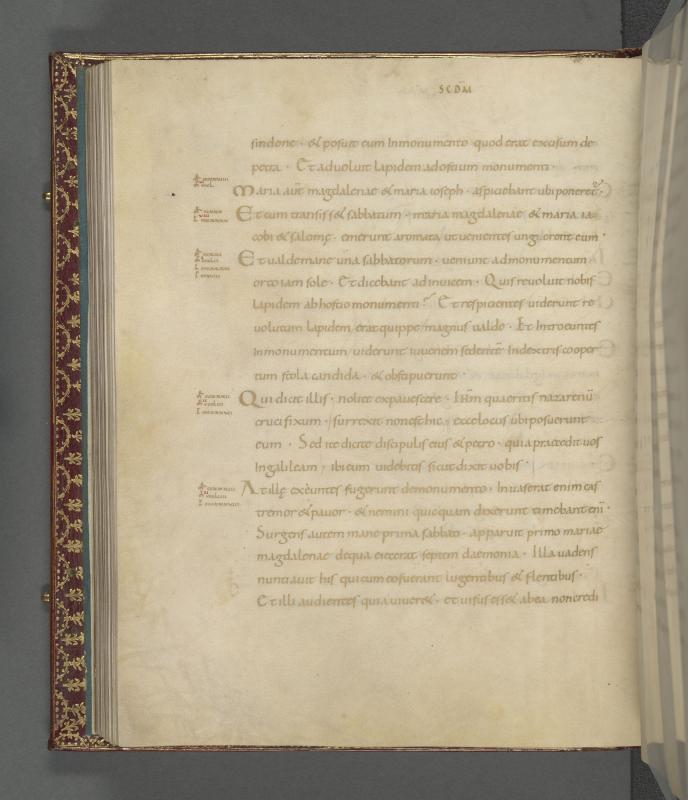 SCDM
sindone · & posuit eum Inmonumento quod erat excisum de
petra · Et aduoluit Lapidem adostium monumenti ·
Maria aut magdalenae & maria ioseph · aspiciebant ubi poneret
Et cum transiss& sabbatum · maria magdalenae & maria ia
cobi & salomę · emerunt aromata, ut uenientes ungerent eum ·
Et ualde mane una sabbatorum · ueniunt ad monumentum
orto iam sole · Et dicebant adinuicem · Quis reuoluit nobis
lapidem ab hostio monumenti Et respicientes uiderunt re
uolutum lapidem, erat quippe magnus ualde · Et Introeuntes
inmonumentum uiderunt iuuenem sedente Indextris cooper
tum stola candida · & obstipuerunt
Qui dicit illis · nolite expauescere · Ihm quaeritis nazarenū
crucifixum · surrexit nonesthic · ecce locus ubi posuerunt
eum · Sed ite dicite discipulis eius & petro · quia praecedit uos
Ingalileam · ibi eum uidebitis sicut dixit uobis ·
At illę exeuntes fugerunt demonumento · Inuaserat enim eas
tremor & pauor · & nemini quicquam dixerunt timebant eni ·
Surgens autem mane prima sabbati · apparuit primo mariae
magdalenae dequa eiecerat septem daemonia · Illa uadens
nuntiauit his qui cum eo fuerant lugentibus & flentibus ·
Et illi audientes quia uiuer& · et uisus ess& abea non credi